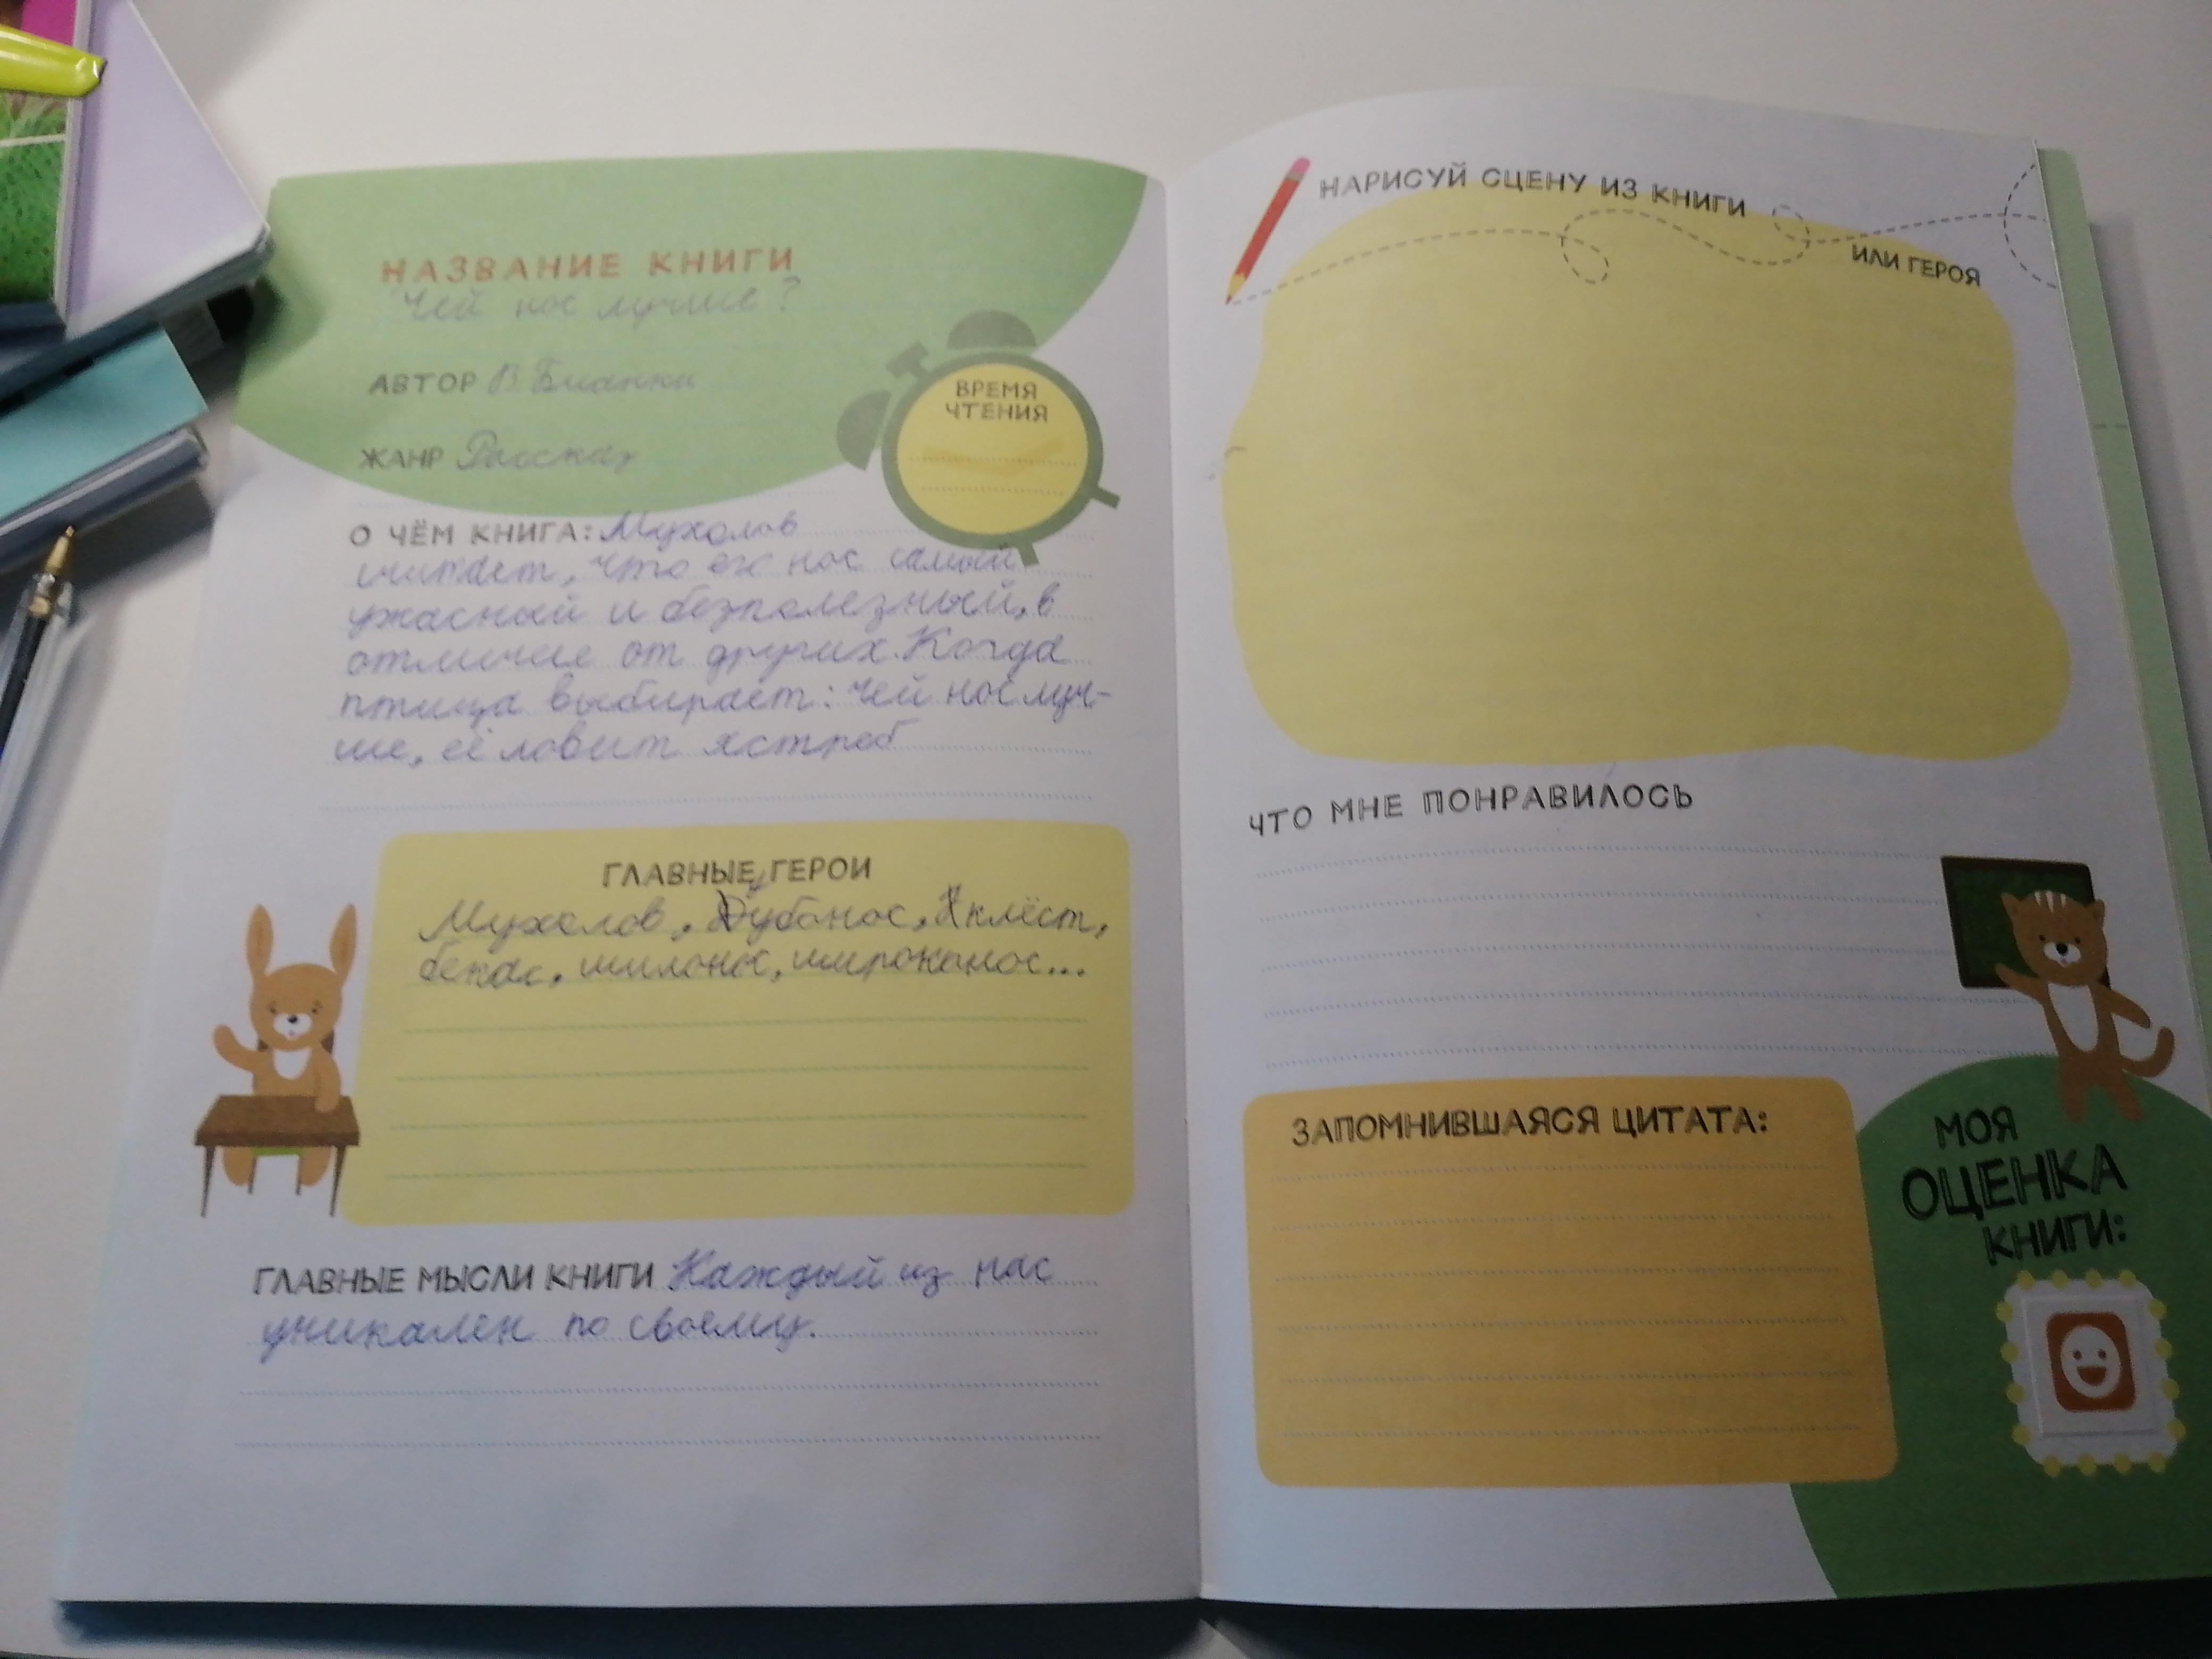 НАЗВАНИЕ КНИГИ
Чей нос лучше?
АВТОР В Бианки
ЖАНР Рассказ
ВРЕМЯ
ЧТЕНИЯ
О ЧЁМ КНИГА: Мухолов
считает, что его нос самый
ужасный и безполезный, в
отличие от других. Когда
птица выбирает: чей нос луч-
ше, её ловит ястреб
ГЛАВНЫЕ ГЕРОИ
Мухолов, Дубонос, клёст,
бекас, шилонос, широконос...
ГЛАВНЫЕ МЫСЛИ КНИГИ Каждый из нас
уникален по своему.
НАРИСУЙ СЦЕНУ ИЗ КНИГИ
ИЛИ ГЕРОЯ
ЧТО МНЕ ПОНРАВИЛОСЬ
ЗАПОМНИВШАЯСЯ ЦИТАТА:
МОЯ
ОЦЕНКА
КНИГИ: